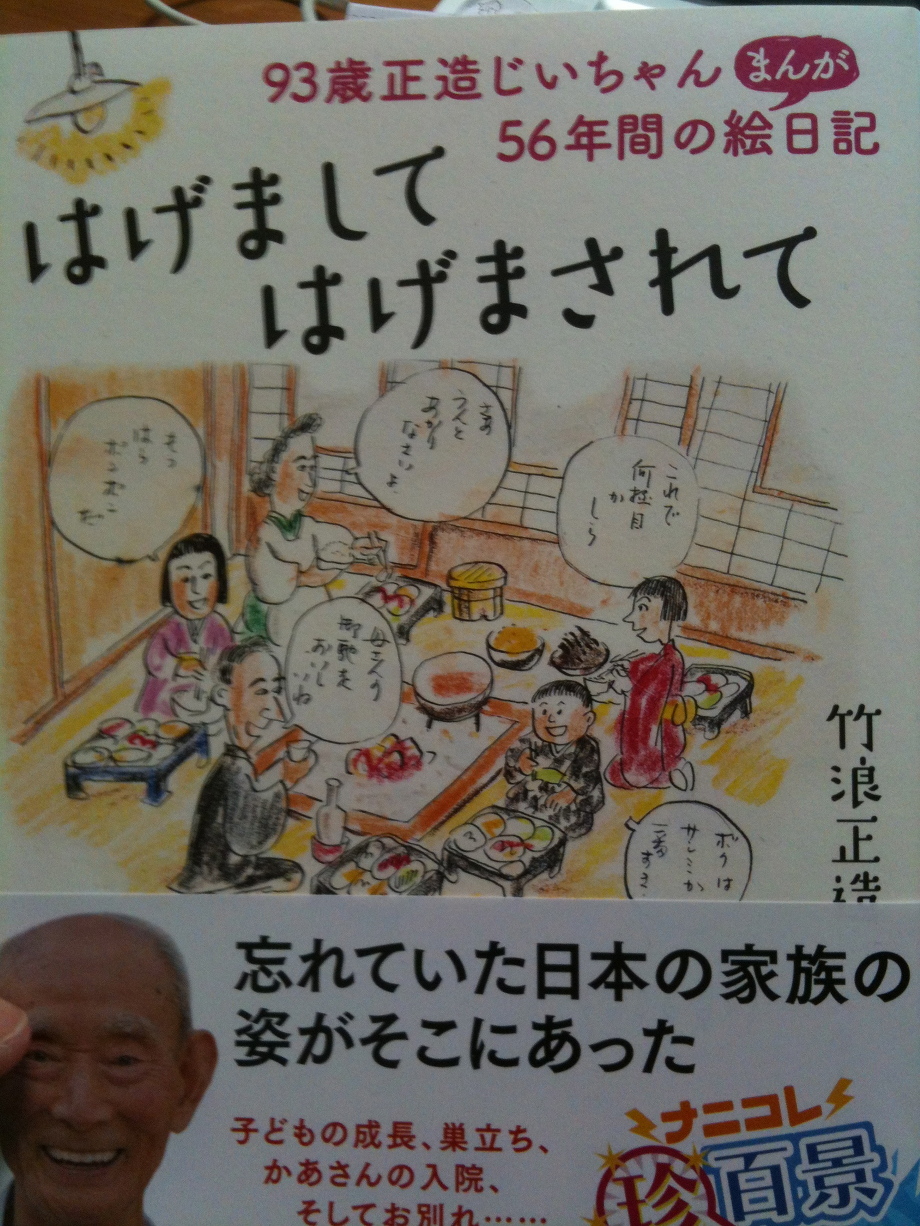 93歳正造じいちゃん
まんが
56年間の絵日記
はげまして
はげまされて
さあ
うんと
あがり
なさいよ
これで
何杯目
か
しら
もう
はら
ポンポコ
だ
母さんの
御馳走
おいし
いね
ボクは
サシミが
一番
すき
竹浪正造
忘れていた日本の家族の
姿がそこにあった
子どもの成長、巣立ち、
かあさんの入院、
そしてお別れ……
ナニコレ
珍百景